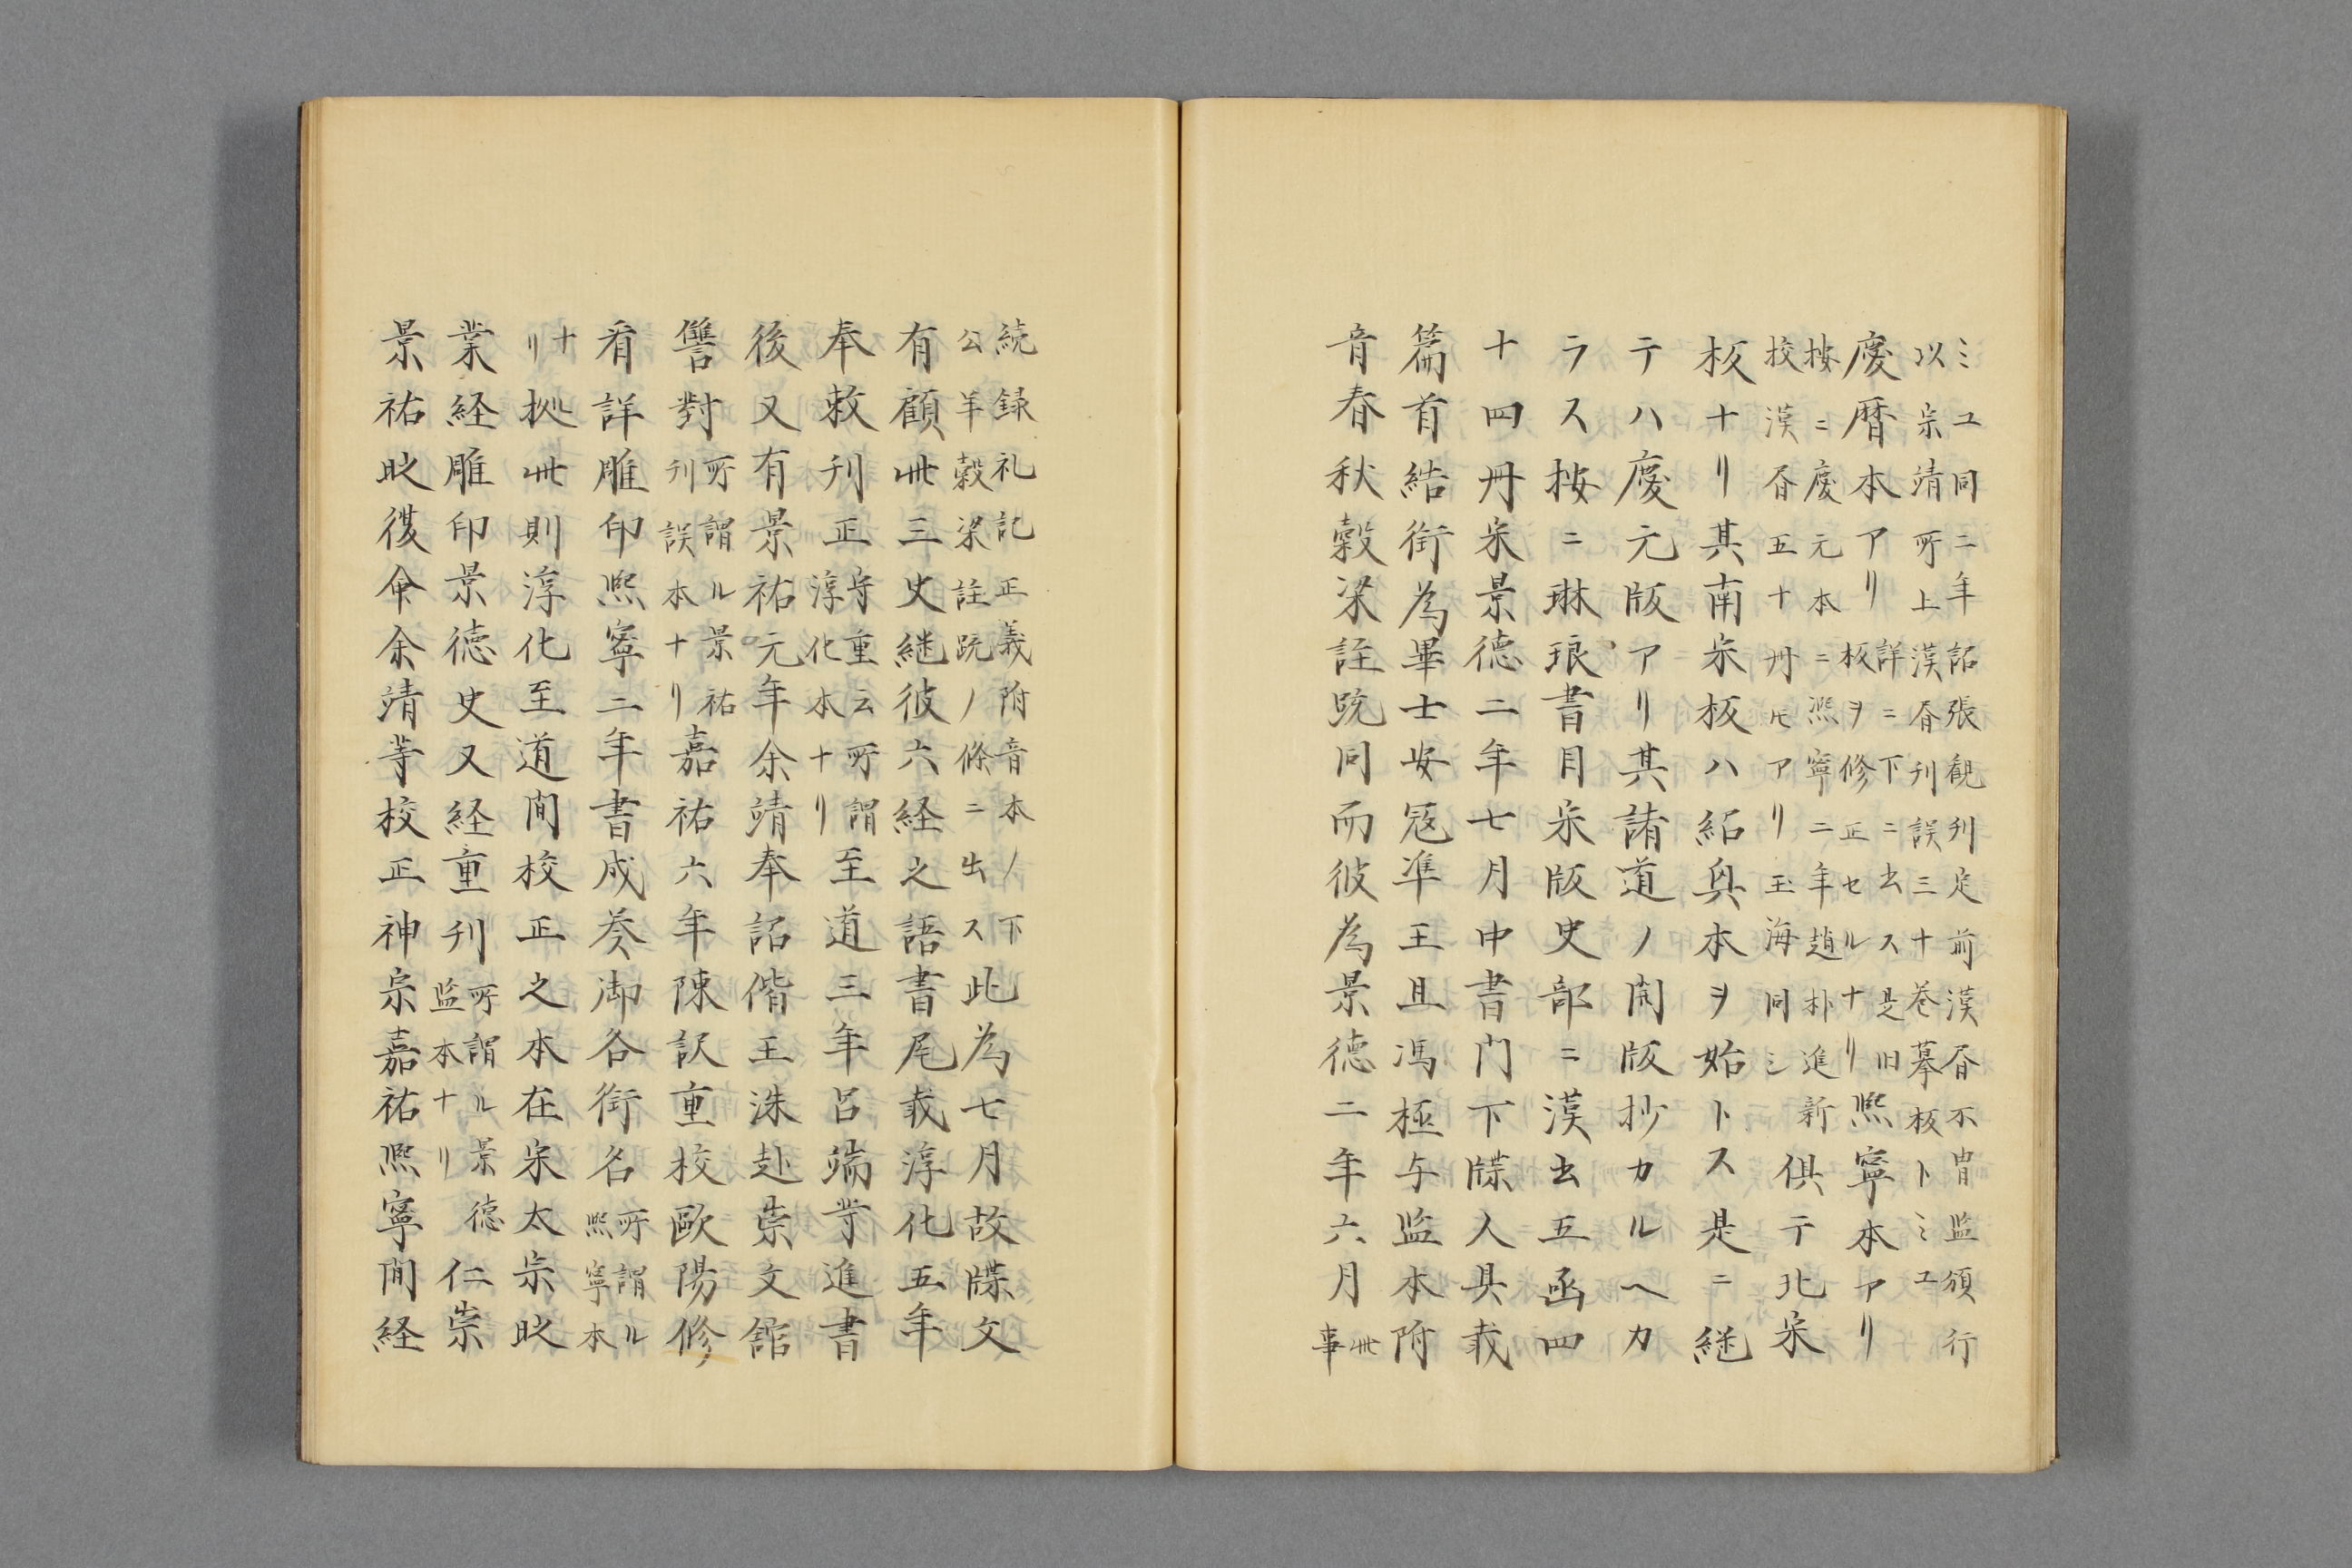 ミユ同二年詔張観刊定前漢各不肯監頒行
以宗靖所上漢各刊誤三十巻摹板トミユ
慶暦本アリ詳ニ下ニ出ス是旧板ヲ修正セルナリ熙寧本アリ
按ニ慶元本ニ熙寧二年趙抃進新校漢各五十冊ヒアリ玉海同シ倶テ北宋
板ナリ其南宋板ハ紹興本ヲ始トス是ニ継
テハ慶元版アリ其諸道ノ開版抄カルヘカ
ラス按ニ琳琅書目宋版史部ニ漢出五函四
十四冊宋景徳二年七月中書門下牒人具載
篇首結銜為畢士安寇準王旦馮極与監本附
音春秋穀梁註䟽同而彼為景徳二年六月此事
続録礼記正義附音本ノ下公羊穀梁註䟽ノ條ニ出ス此為七月故牒文
有顧此三史継彼六経之語書尾載淳化五年
奉敕刊正守重云所謂淳化本ナリ至道三年呂端等進書
後又有景祐元年余靖奉詔偕王洙赴崇文館
讐對所謂ル景祐刊誤本ナリ嘉祐六年陳訳重校歐陽修
看詳雕印熙寧二年書成奏御各銜名所謂ル熙寧本
ナリ拠此則淳化至道間校正之本在宋太宗時
業経雕印景徳史又経重刊所謂ル景徳監本ナリ仁宗
景祐時復命余靖等校正神宗嘉祐熙寧間経